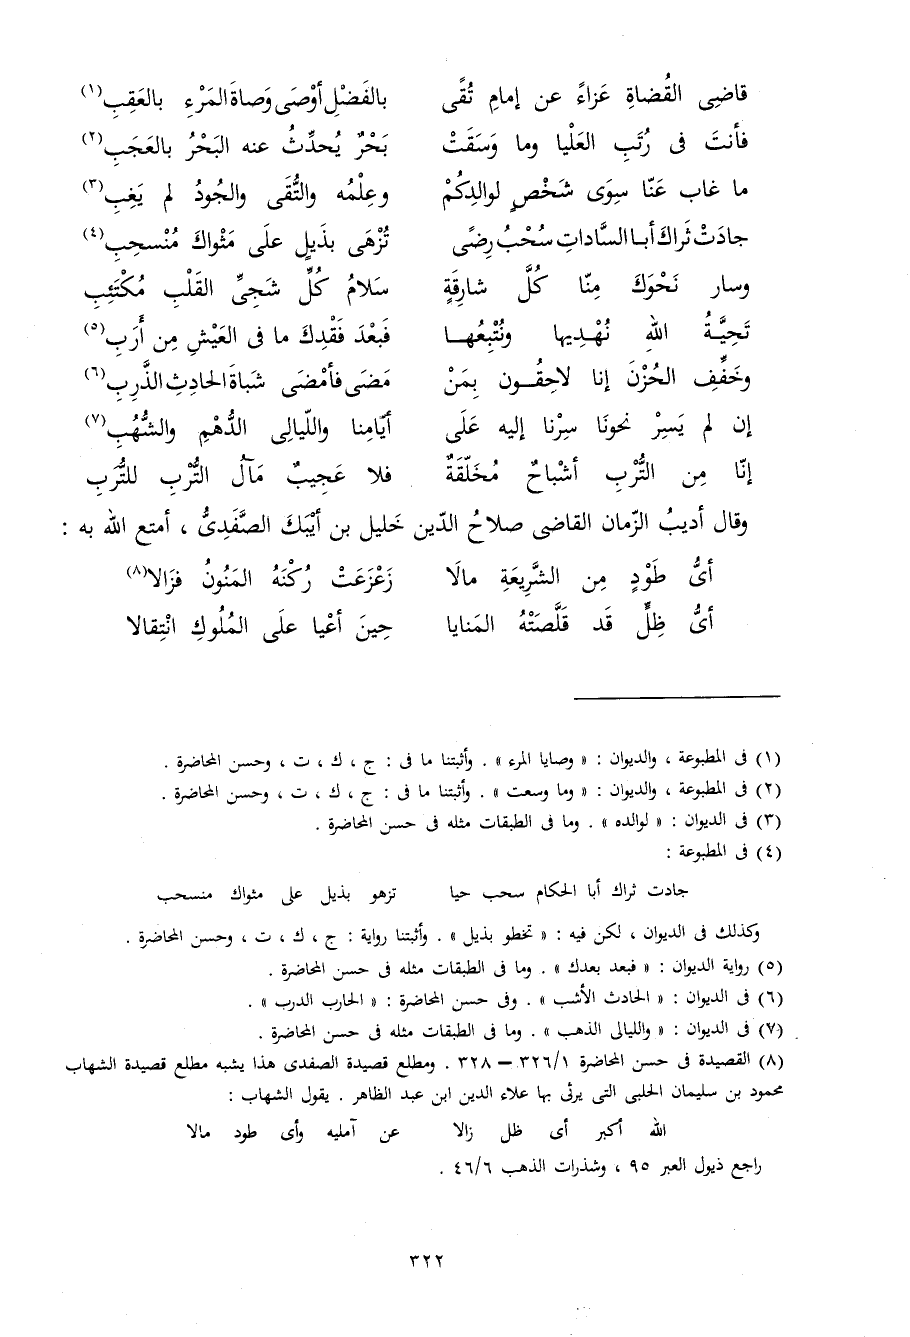 قاضِى القُضاةِ عَزاءً عن إمامِ تُقًى بالفَضْلِ أوْصَى وَصاةَ المَرْءِ بالعَقِبِ(١)
فأنتَ فى رُتَبِ العَلْيا وما وَسَقَتْ بَحْرٌ يُحدِّثُ عنه البَحْرُ بالعَجَبِ(٢)
ما غاب عَنّا سِوَى شَخْصٍ لوالدِكُمْ وعِلْمُه والتُّقَى والجُودُ لم يَغِبِ(٣)
جادَتْ ثَراكَ أبا السَّاداتِ سُحْبُ رِضًى تُزْهَى بذَيلٍ علَى مَثْواكَ مُنْسحِبِ(٤)
وسار نَحْوَكَ مِنّا كُلَّ شارِقَةٍ سَلامُ كُلِّ شَجِىِّ القَلْبِ مُكْتَئِبِ
تَحِيَّةُ اللهِ نُهْدِيها ونُتْبِعُها فَبَعْدَ فَقْدِكَ ما فى العَيْشِ مِن أَرَبِ(٥)
وخَفِّفِ الحُزْنَ إنا لاحِقُون بِمَنْ مَضَى فأمْضَى شَباةَ الحادِثِ الذَّرِبِ(٦)
إن لم يَسِرْ نحونَا سِرْنا إليه عَلَى أيّامِنا واللّيالِى الدُّهْمِ والشُّهُبِ(٧)
إنّا مِن التُّرْبِ أشْباحٌ مُخَلَّقَةٌ فلا عَجِيبٌ مَآلُ التُّرْبِ للتُّرَبِ
وقال أديبُ الزّمان القاضى صلاحُ الدّين خَليل بن أيْبَكَ الصَّفَدِىُّ ، أمتع الله به :
أىُّ طَوْدٍ مِن الشَّرِيعَةِ مالَا زَعْزَعَتْ رُكْنَهُ المَنُونُ فزَالا(٨)
أىُّ ظِلٍّ قَد قَلَّصَتْهُ المَنايا حِينَ أعْيا علَى المُلُوكِ انْتِقالا
(١) فى المطبوعة ، والديوان : « وصايا المرء » . وأثبتنا ما فى : ج ، ك ، ت ، وحسن المحاضرة .
(٢) فى المطبوعة ، والديوان : « وما وسعت » . وأثبتنا ما فى : ج ، ك ، ت ، وحسن المحاضرة .
(٣) فى الديوان : « لوالده » . وما فى الطبقات مثله فى حسن المحاضرة .
(٤) فى المطبوعة :
جادت ثراك أبا الحكام سحب حيا تزهو بذيل على مثواك منسحب
وكذلك فى الديوان ، لكن فيه : « تخطو بذيل » . وأثبتنا رواية : ج ، ك ، ت ، وحسن المحاضرة .
(٥) رواية الديوان : « فبعد بعدك » . وما فى الطبقات مثله فى حسن المحاضرة .
(٦) فى الديوان : « الحادث الأشب » . وفى حسن المحاضرة : « الحارب الدرب » .
(٧) فى الديوان : « والليالى الذهب » . وما فى الطبقات مثله فى حسن المحاضرة .
(٨) القصيدة فى حسن المحاضرة ٣٢٦/١ – ٣٢٨ . ومطلع قصيدة الصفدى هذا يشبه مطلع قصيدة الشهاب
محمود بن سليمان الحلبى التى يرثى بها علاء الدين ابن عبد الظاهر . يقول الشهاب :
الله أكبر أى ظل زالا عن آمليه وأى طود مالا
راجع ذيول العبر ٩٥ ، وشذرات الذهب ٤٦/٦ .
٣٢٢